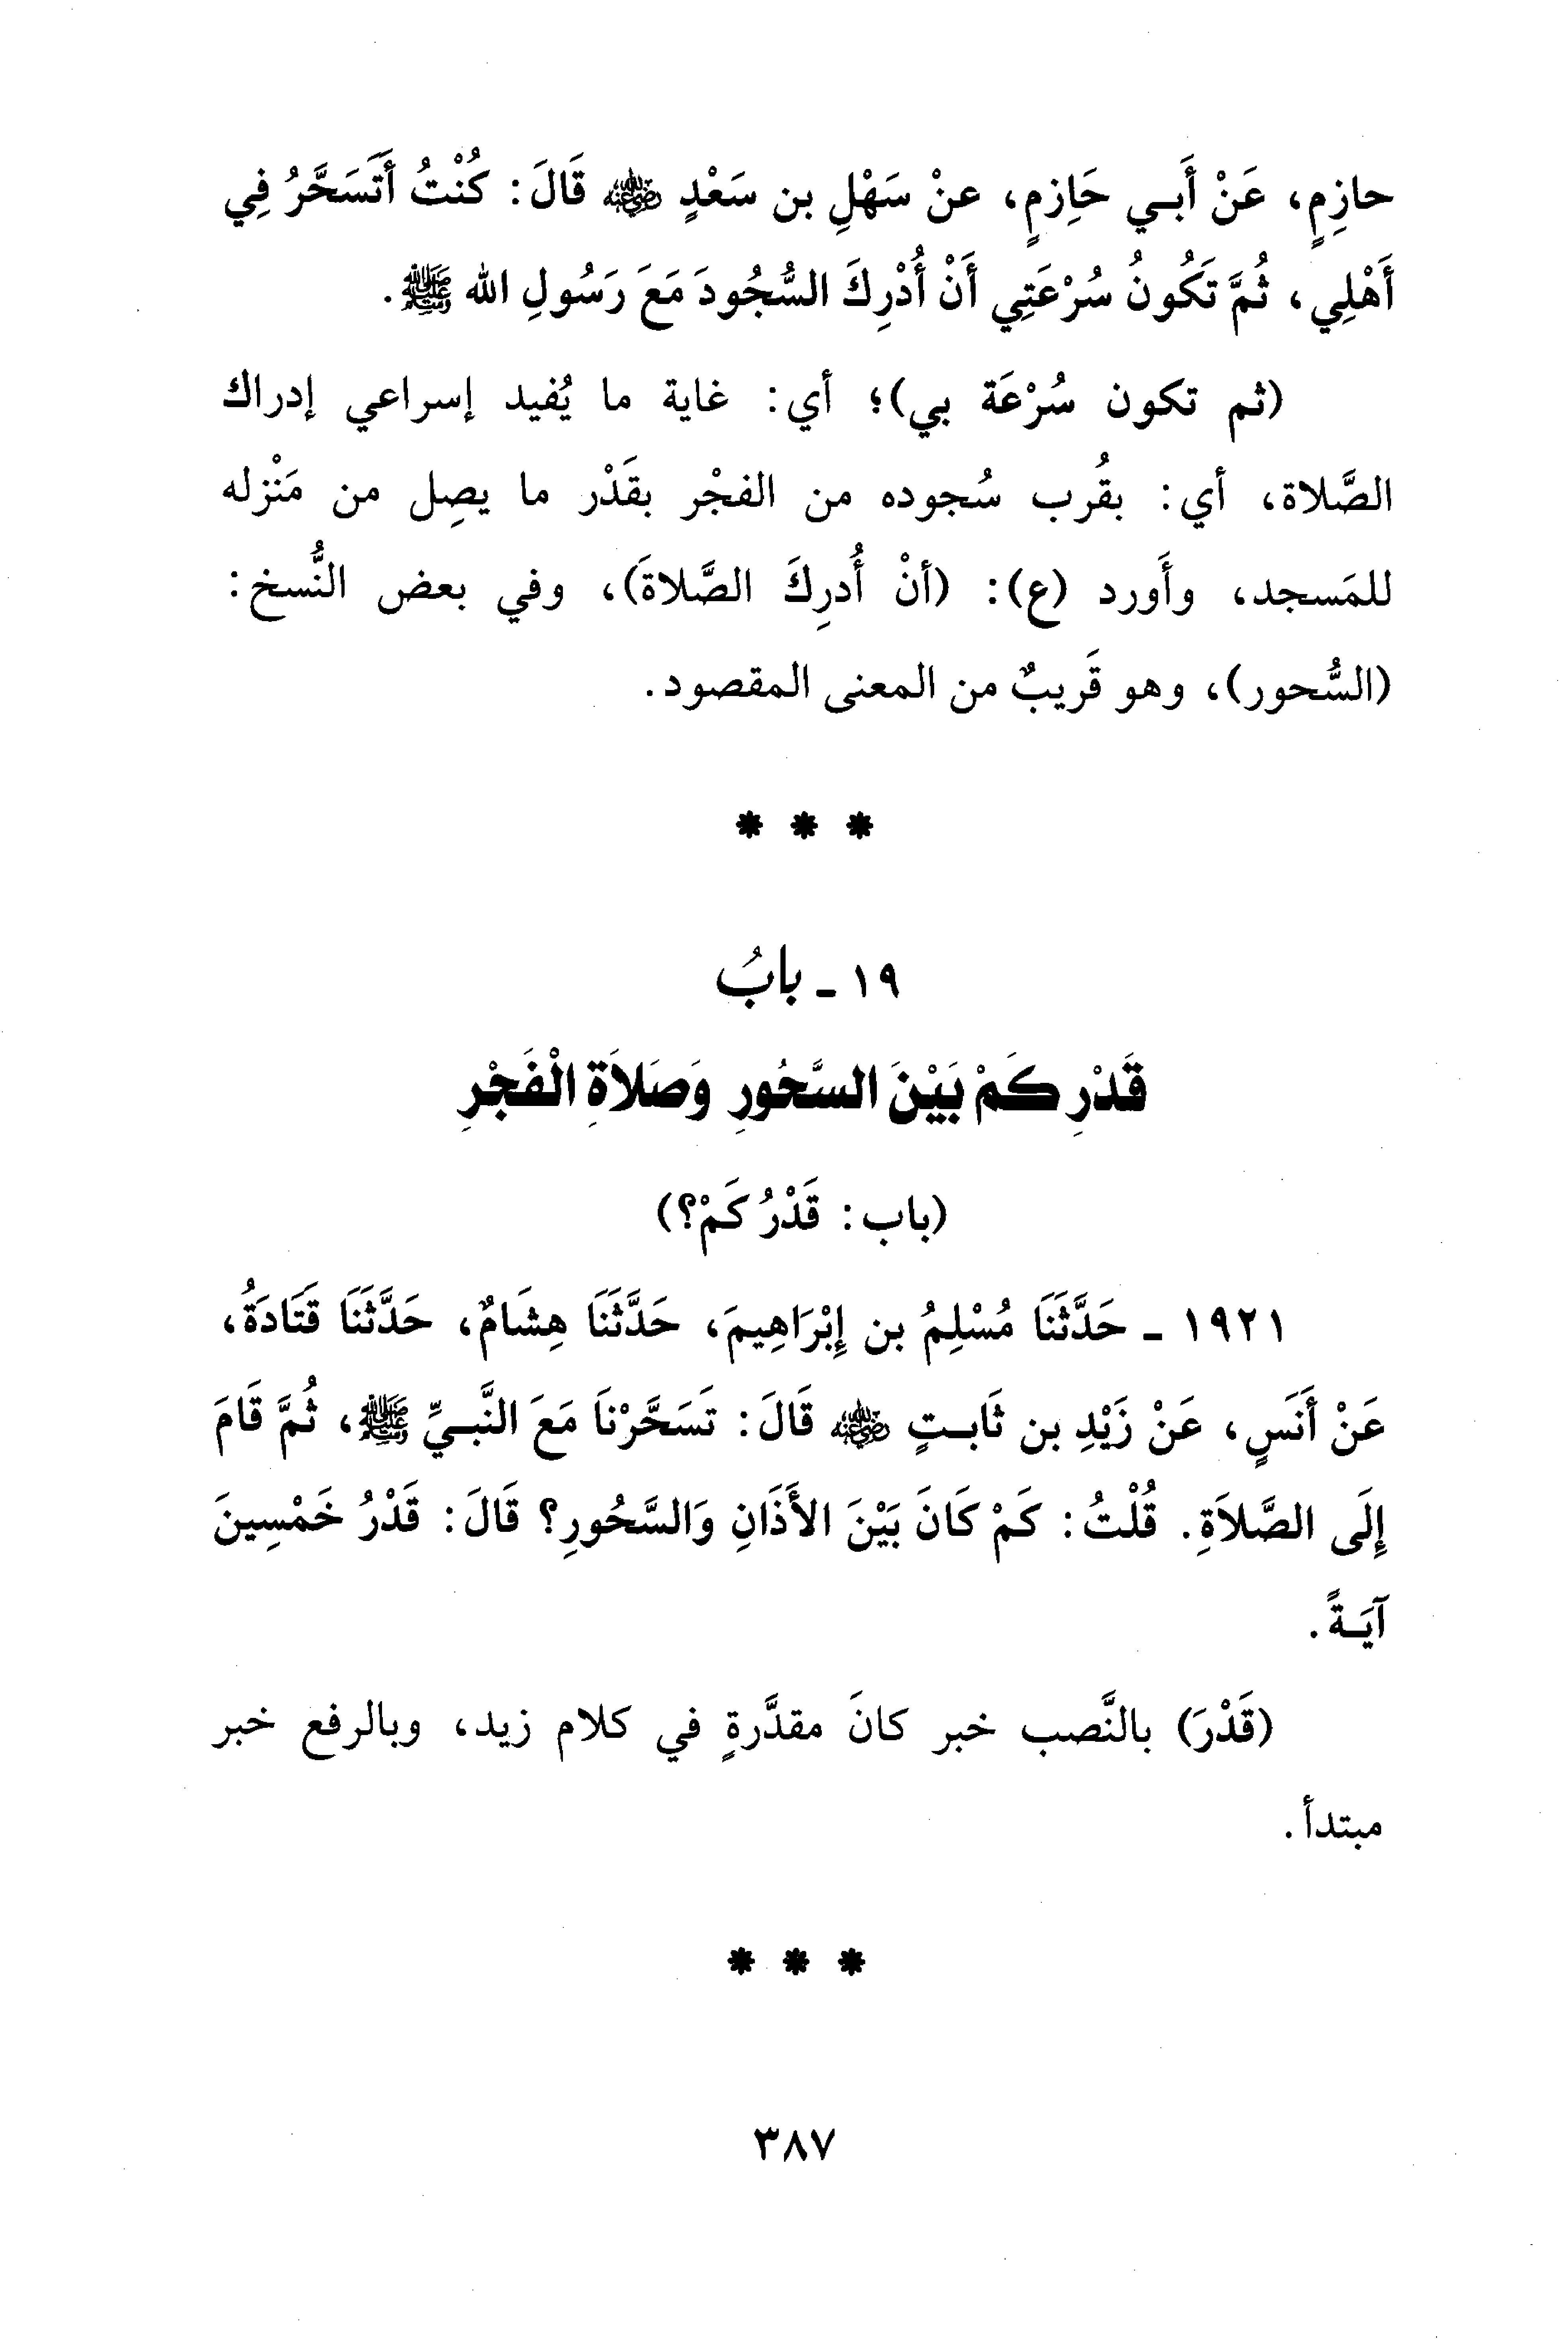 حازِمٍ، عَنْ أَبِي حَازِمٍ، عنْ سَهْلِ بن سَعْدٍ ﵁ قَالَ: كُنْتُ أَتَسَحَّرُ فِي
أَهْلِي، ثُمَّ تَكُونُ سُرْعَتِي أَنْ أُدْرِكَ السُّجُودَ مَعَ رَسُولِ الله ﷺ.
(ثم تكون سُرْعَة بي)؛ أي: غاية ما يُفيد إسراعي إدراك
الصَّلاة، أي: بقُرب سُجوده من الفجْر بقَدْر ما يصِل من مَنْزله
للمَسجد، وأَورد (ع): (أنْ أُدرِكَ الصَّلاةَ)، وفي بعض النُّسخ:
(السُّحور)، وهو قَريبٌ من المعنى المقصود.
* * *
١٩ - بابُ
قَدْرِ كَمْ بَيْنَ السَّحُورِ وَصَلاَةِ الْفَجْرِ
(باب: قَدْرُ كَمْ؟)
١٩٢١ - حَدَّثَنَا مُسْلِمُ بن إِبْرَاهِيمَ، حَدَّثَنَا هِشَامٌ، حَدَّثَنَا قَتَادَةُ،
عَنْ أَنَسٍ، عَنْ زَيْدِ بن ثَابِتٍ ﵁ قَالَ: تَسَحَّرْنَا مَعَ النَّبِيِّ ﷺ، ثُمَّ قَامَ
إِلَى الصَّلاَةِ. قُلْتُ: كَمْ كَانَ بَيْنَ الأَذَانِ وَالسَّحُورِ؟ قَالَ: قَدْرُ خَمْسِينَ
آيَةً.
(قَدْرَ) بالنَّصب خبر كانَ مقدَّرةٍ في كلام زيد، وبالرفع خبر
مبتدأ.
* * *
٣٨٧